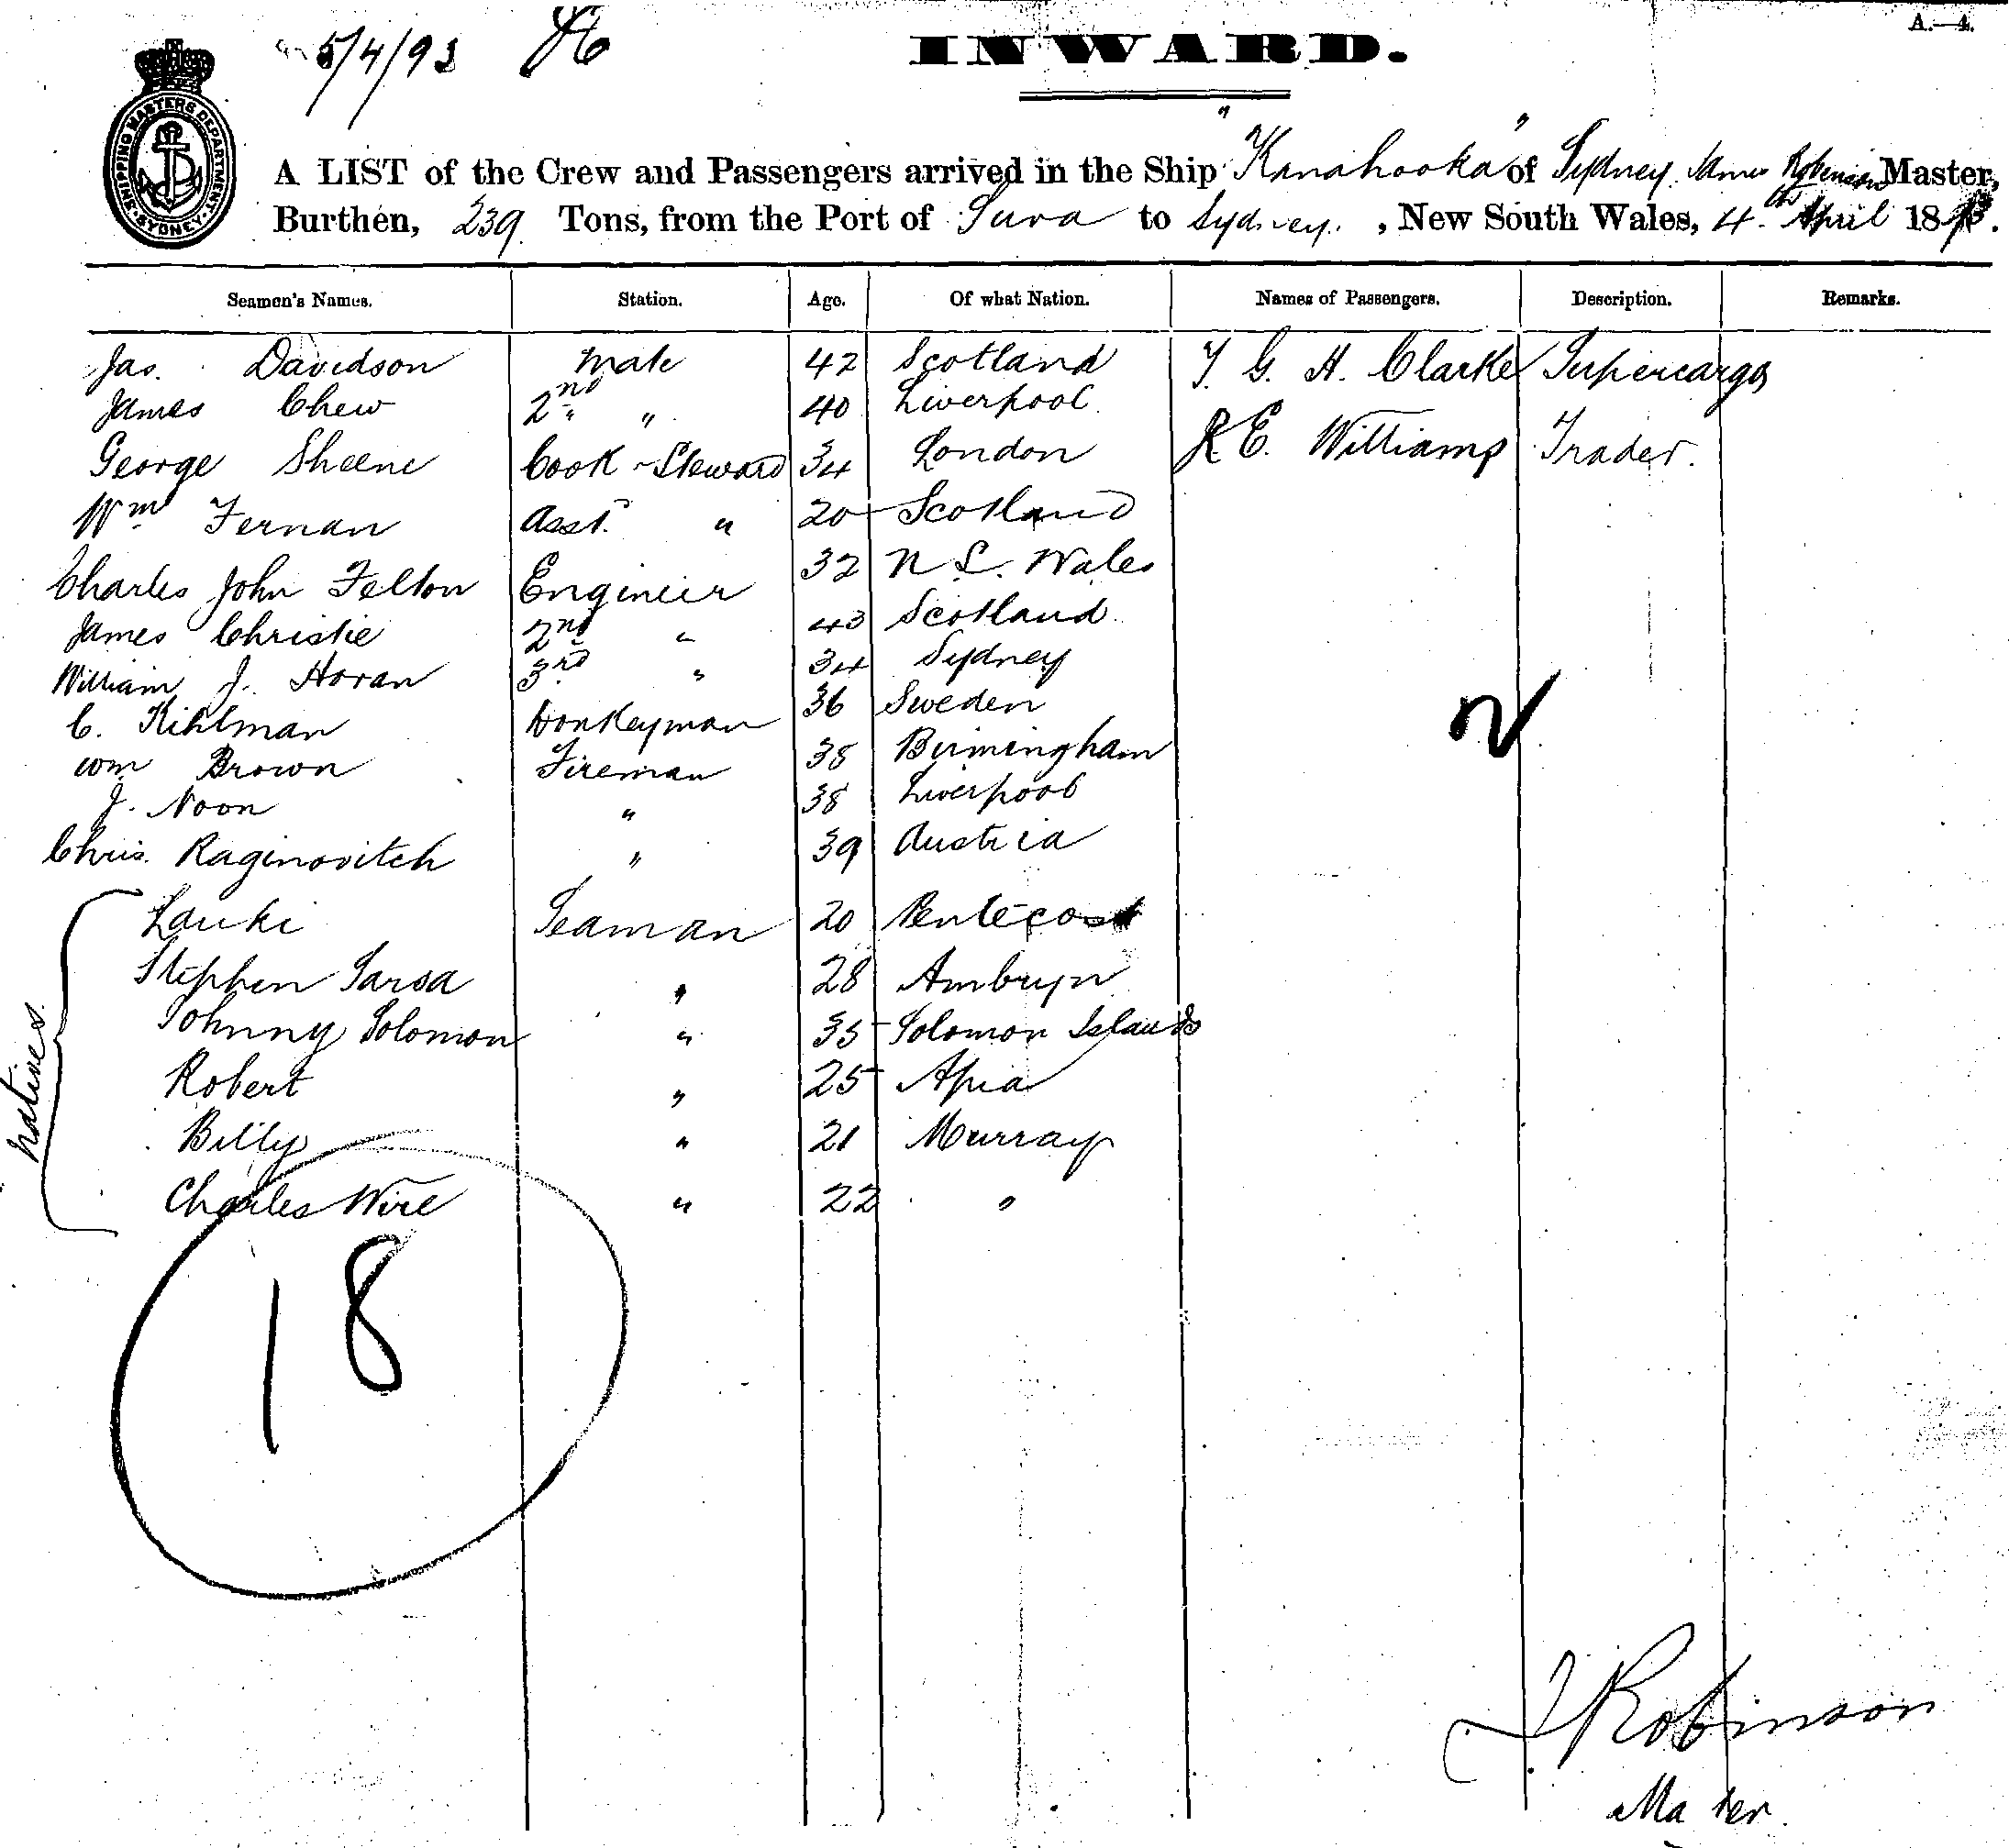 5/4/93
A.—4.
INWARD.
SHIPPING MASTERS DEPARTMENT SYDNEY
A LIST of the Crew and Passengers arrived in the Ship "Kanahooka" of Sydney. James Robinson Master,
Burthen, 239 Tons, from the Port of Suva to Sydney, New South Wales, 4th April 1893.
Seamen's Names. Station. Age. Of what Nation. Names of Passengers. Description. Remarks.
Jas. Davidson Mate 42 Scotland G. H. Clarke Supercargo
James Chew 2nd " 40 Liverpool
George Sheene Cook - Steward 34 London E. Williams Trader.
Wm Fernan Asst. " 20 Scotland
Charles John Felton Engineer 32 N. S. Wales
James Christie 2nd " 43 Scotland
William J. Horan 3rd " 34 Sydney
C. Kihlman Donkeyman 36 Sweden
Wm Brown Fireman 38 Birmingham
J. Noon " 38 Liverpool
Chris. Raginovitch " 39 Austria
natives
Lauki Seaman 20 Pentecost
Stephen Sarsa " 28 Ambrym
Johnny Solomon " 35 Solomon Islands
Robert " 25 Apia
Billy " 21 Murray
Charles Wire " 22 "
18
J Robinson
Master